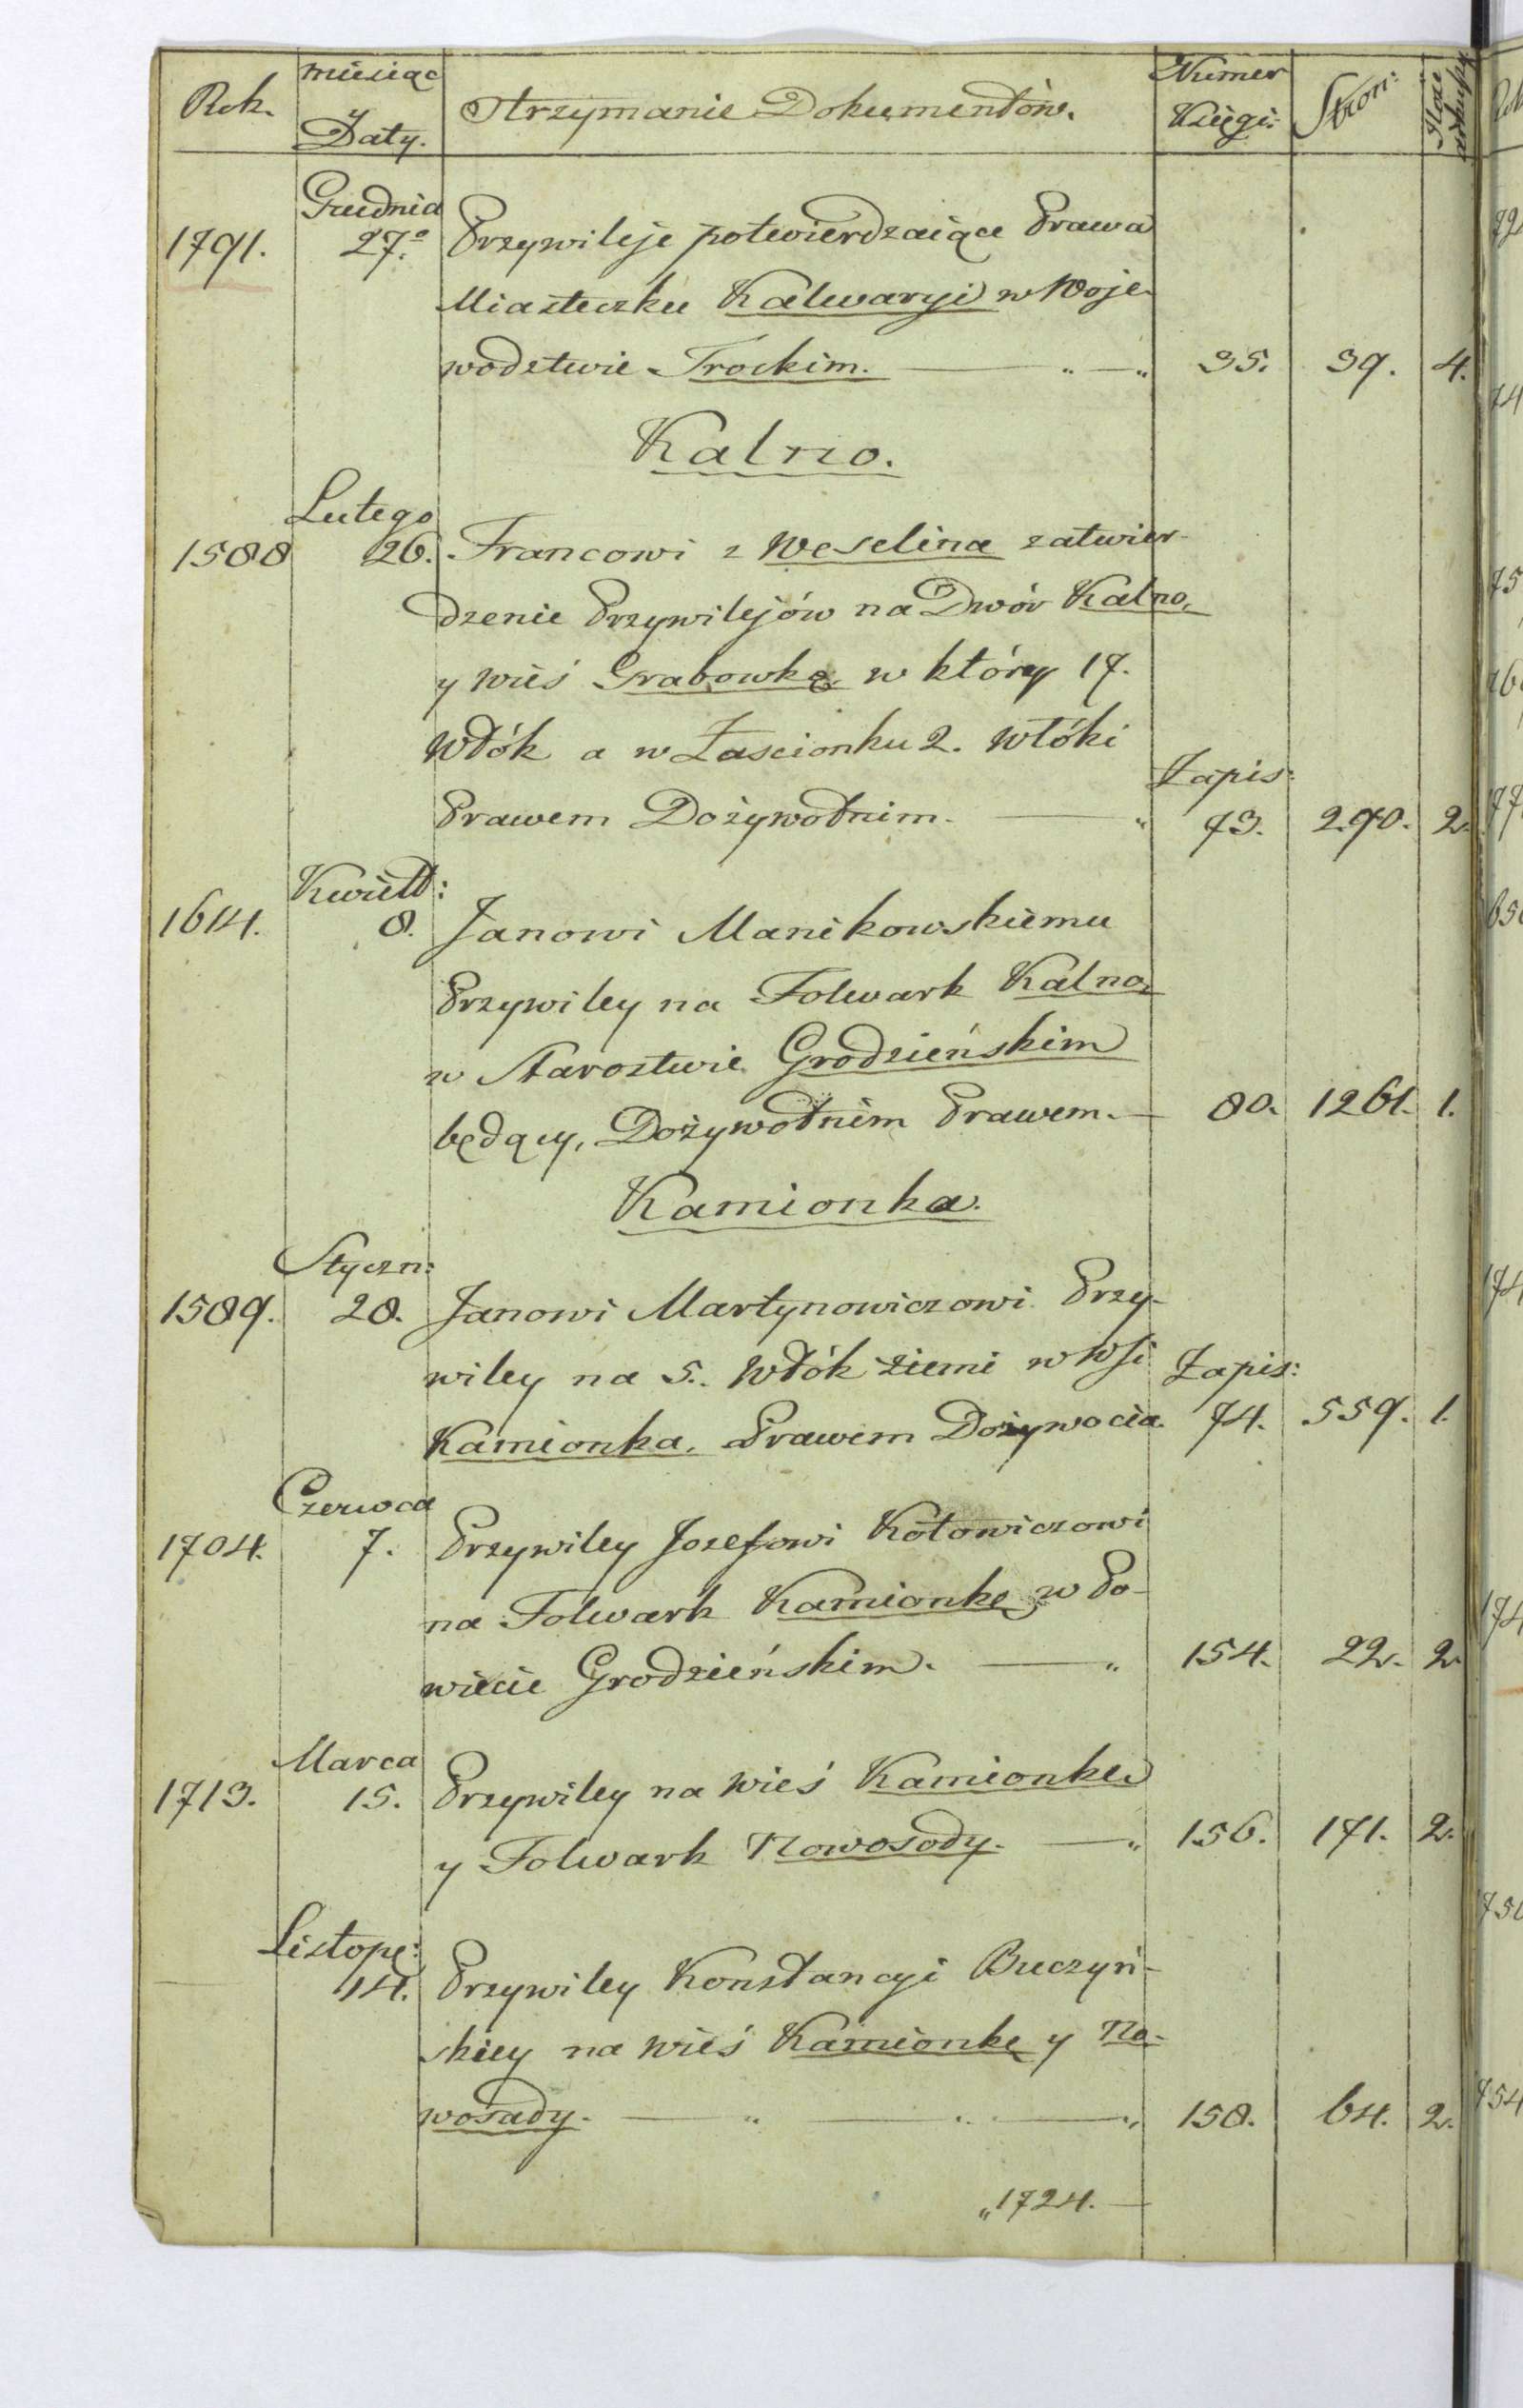 Rok.
miesiąc
y
Daty.
Otrzymanie Dokumentów.
Numer
Księgi:
Stron:
Ilość
arkuszy
Grudnia
1791. 27.º Przywileje potwierdzaiące Prawa
Miasteczku Kalwaryi w Woje-
wodztwie Trockim. 35. 39. 4.
Kalno.
Lutego
1588 26. Francowi z Weselina zatwier-
dzenie Przywilejów na Dwór Kalno,
y wieś Grabowkę w który 17.
Włók a w Zascionku 2. Włóki
Zapis:
Prawem Dożywotnim. 73. 270. 2.
Kwiett:
1614. 8. Janowi Manikowskiemu
Przywiley na Folwark Kalno,
w Starostwie Grodzieńskim
będący, Dożywotnim Prawem. 80. 1261. 1.
Kamionka.
Styczn:
1589. 28. Janowi Martynowiczowi Przy-
wiley na 5. Włók ziemi w Wsi Zapis:
Kamionka. Prawem Dożywocia. 74. 559. 1.
Czerwca
1704. 7. Przywiley Jozefowi Kotowiczowi
na Folwark Kamionkę w Po-
wiecie Grodzieńskim. 154. 22. 2
Marca
1713. 15. Przywiley na wieś Kamionkę
y Folwark Nowosody. 156. 171. 2.
Listopa:
14. Przywiley Konstancyi Buczyń-
skiey na wieś Kamionkę y No-
wosady. 158. 64. 2.
„1724.